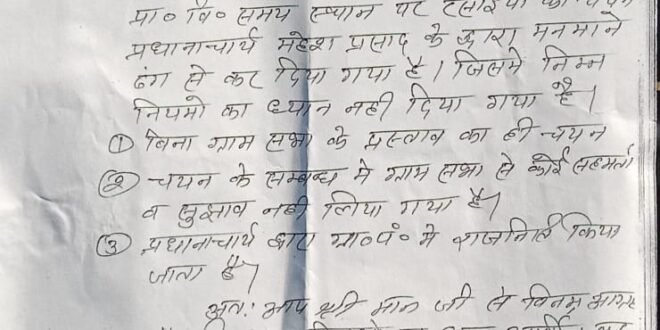 प्रा० वि० समय स्थान पर रसोइया का चयन
प्रधानाचार्य महेश प्रसाद के द्वारा मनमाने
ढंग से कर दिया गया है। जिसमे निम्न
नियमो का ध्यान नही दिया गया है।
① बिना ग्राम सभा के प्रस्ताव का ही चयन
② चयन के सम्बन्ध मे ग्राम सभा से कोई सहमती
व सुझाव नही लिया गया है।
③ प्रधानाचार्य द्वारा ग्रा०पं० मे राजनिति किया
जाता है।
अतः आप श्री मान जी से विनम्र आग्रह